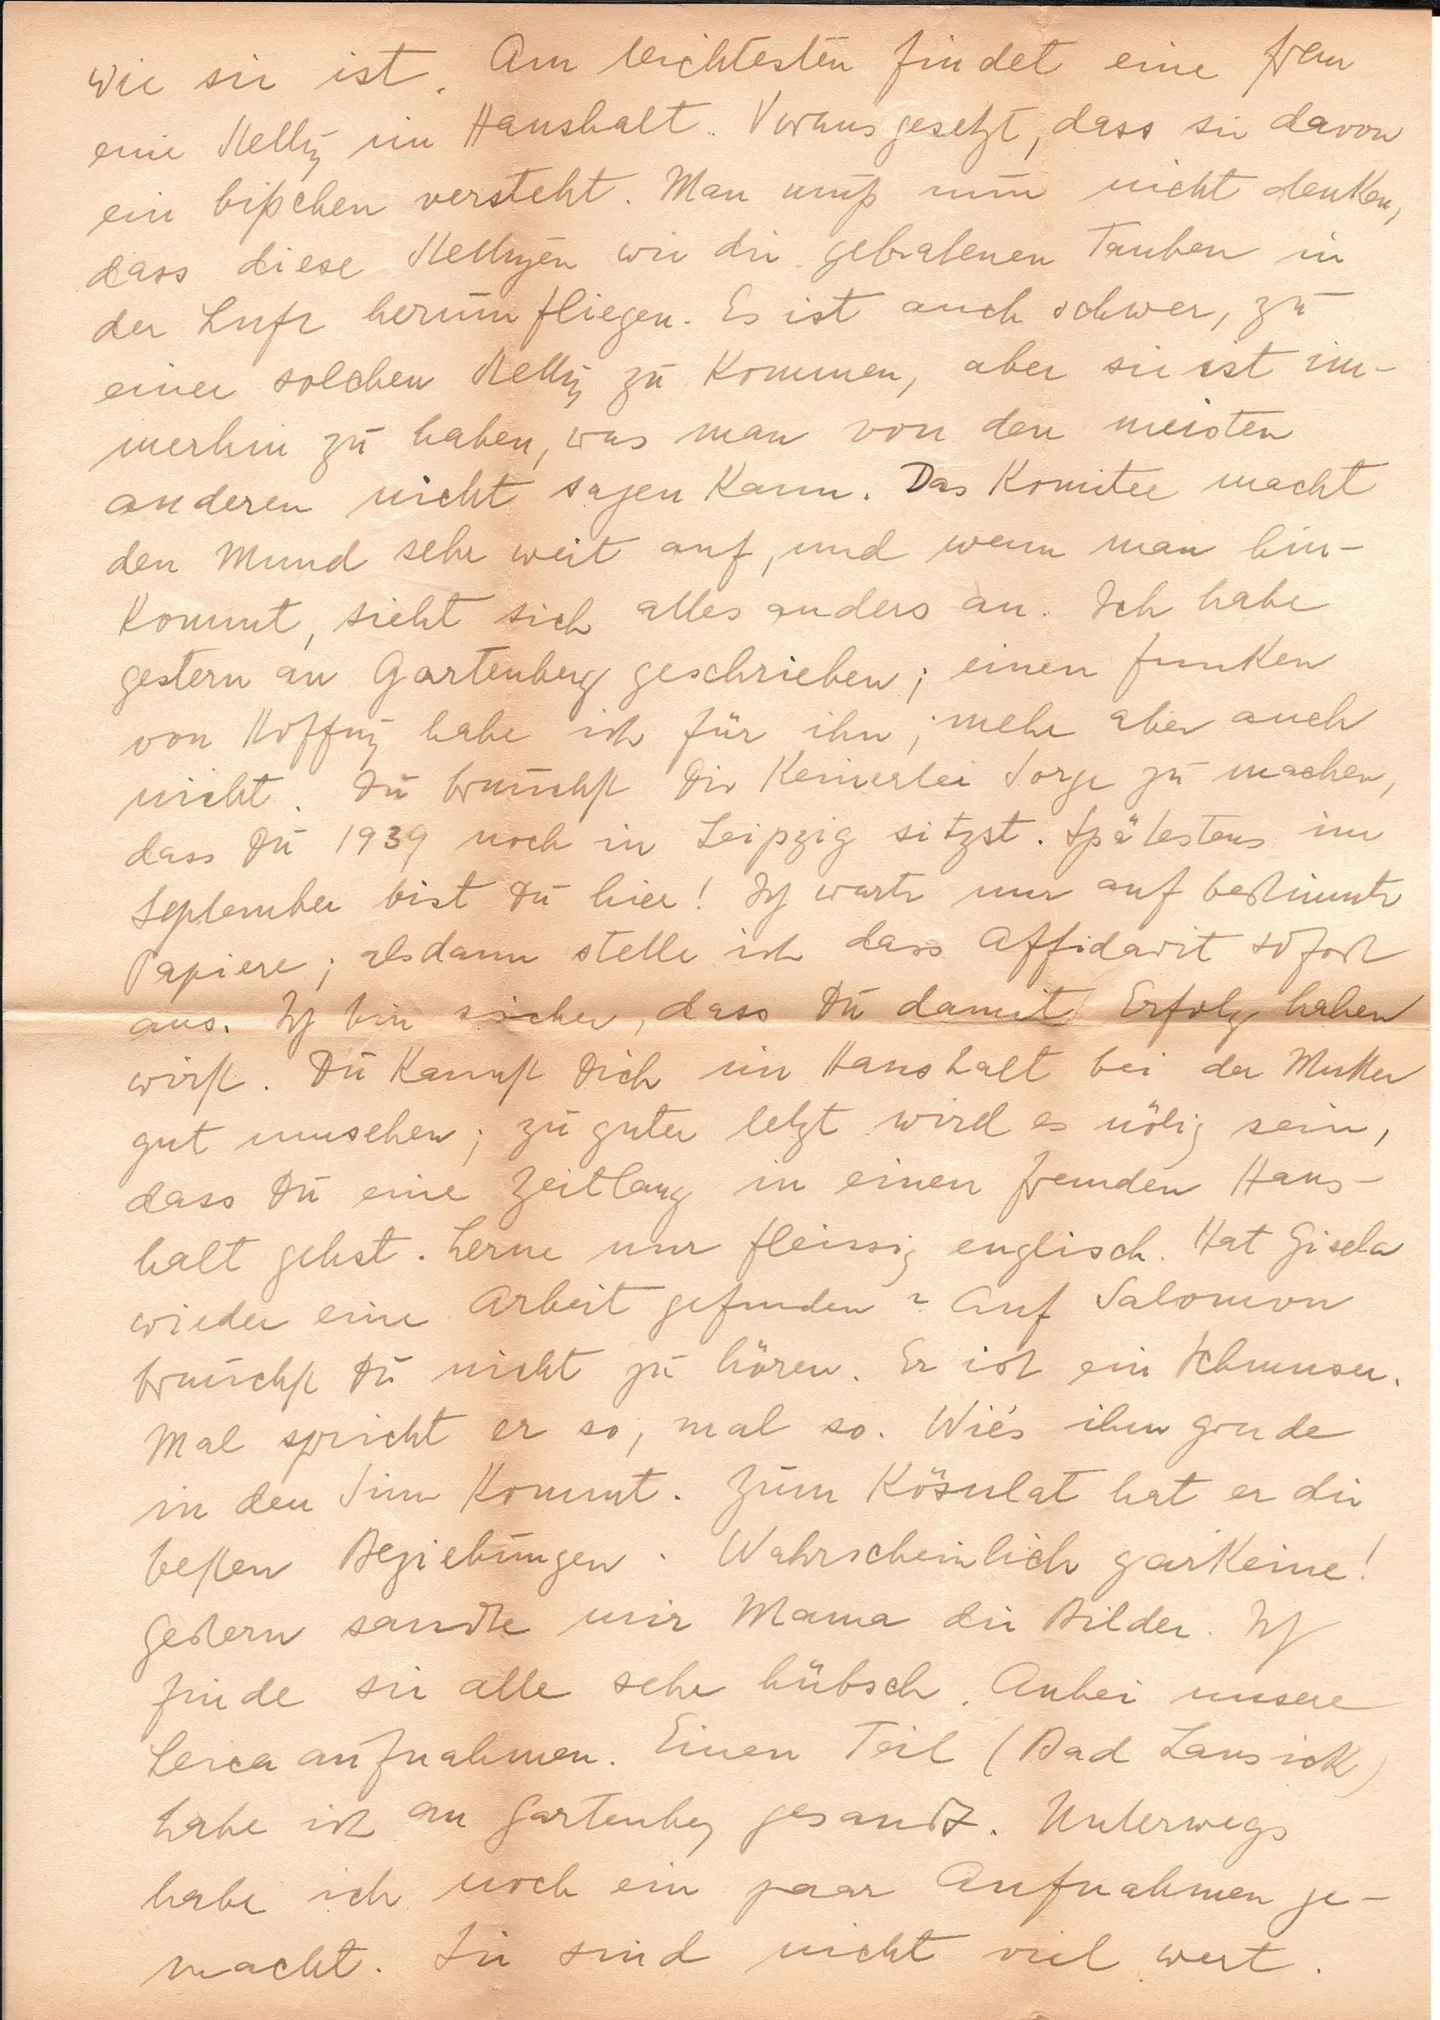 wie sie ist. Am leichtesten findet eine Frau
eine Stellg im Haushalt. Vorausgesetzt, dass sie davon
ein bißchen versteht. Man muß nun nicht denken,
dass diese Stellgen wie die gebratenen Tauben in
der Luft herumfliegen. Es ist auch schwer, zu
einer solchen Stellg zu Kommen, aber sie ist im-
merhin zu haben, was man von den meisten
anderen nicht sagen Kann. Das Komitee macht
den Mund sehr weit auf, und wenn man hin-
Kommt, sieht sich alles anders an. Ich habe
gestern an Gartenberg geschrieben; einen Funken
von Hoffng habe ich für ihn; mehr aber auch
nicht. Du brauchst Dir Keinerlei Sorge zu machen,
dass Du 1939 noch in Leipzig sitzst. Spätestens im
September bist Du hier! Ich warte nur auf bestimmte
Papiere; alsdann stelle ich dass Affidavit sofort
aus. Ich bin sicher, dass Du damit Erfolg haben
wirst. Du Kannst Dich im Haushalt bei der Mutter
gut umsehen; zu guter letzt wird es nötig sein,
dass Du eine Zeitlang in einen fremden Haus-
halt gehst. Lerne nur fleissig englisch. Hat Gisela
wieder eine Arbeit gefunden? Auf Salomon
brauchst Du nicht zu hören. Er ist ein Schmuser.
Mal spricht er so, mal so. Wie's ihm grade
in den Sinn Kommt. Zum Kōsulat hat er die
besten Beziehungen. Wahrscheinlich garKeine!
Gestern sandte mir Mama die Bilder. Ich
finde sie alle sehr hübsch. Anbei unsere
Leicaaufnahmen. Einen Teil (Bad Lausick)
habe ich an Gartenbg gesandt. Unterwegs
habe ich noch ein paar Aufnahmen ge-
macht. Sie sind nicht viel wert.